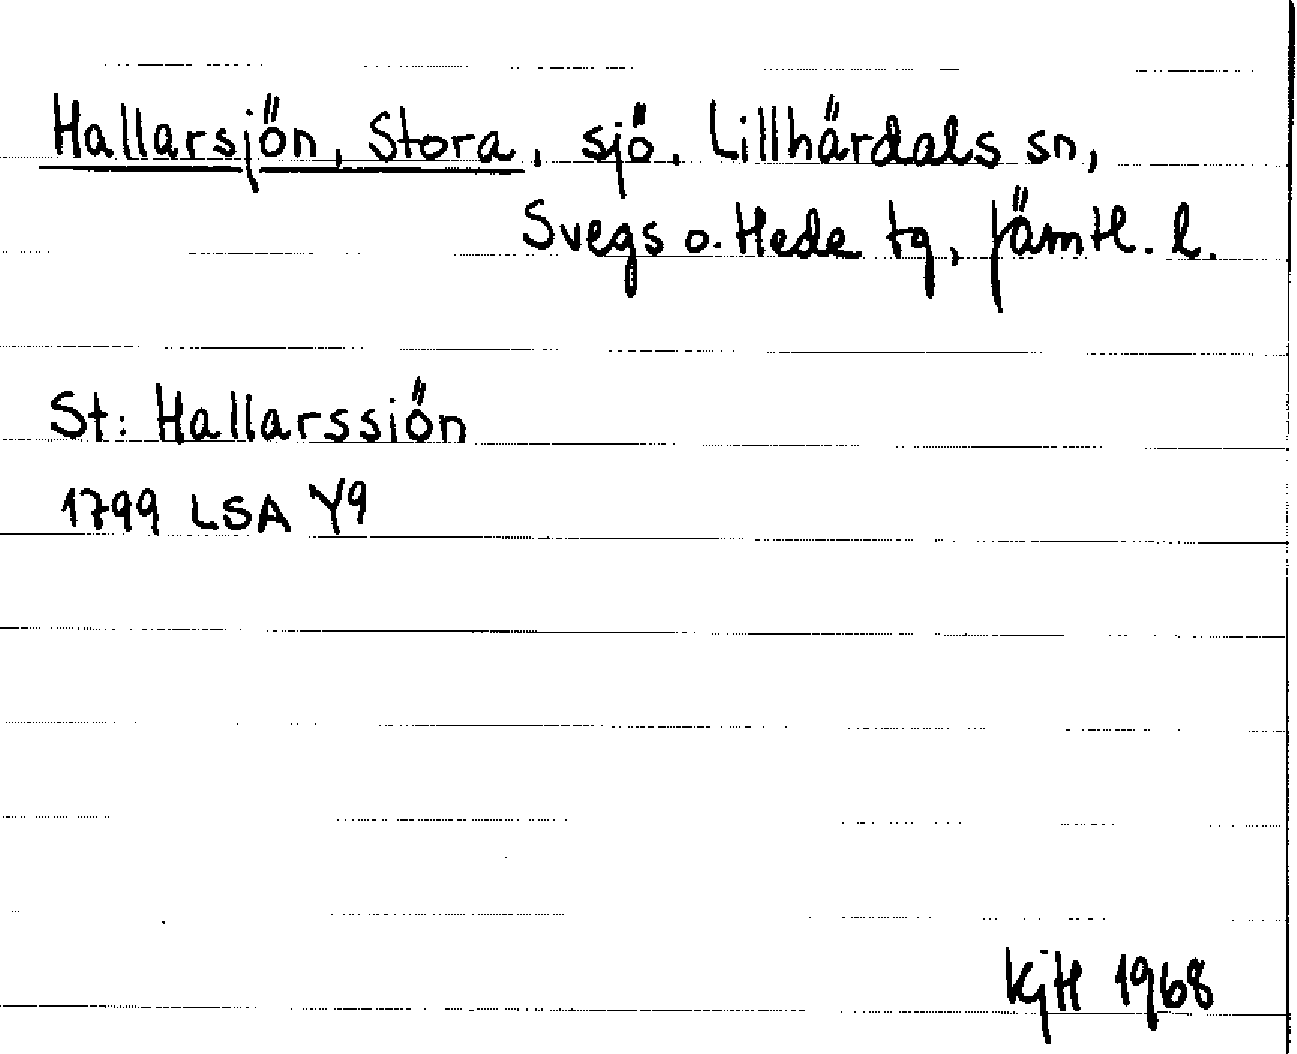 Hallarsjön, Stora, sjö. Lillhärdals sn,
Svegs o. Hede tg, Jämtl. l.
St: Hallarssiön
1799 LSA Y9
KjH 1968